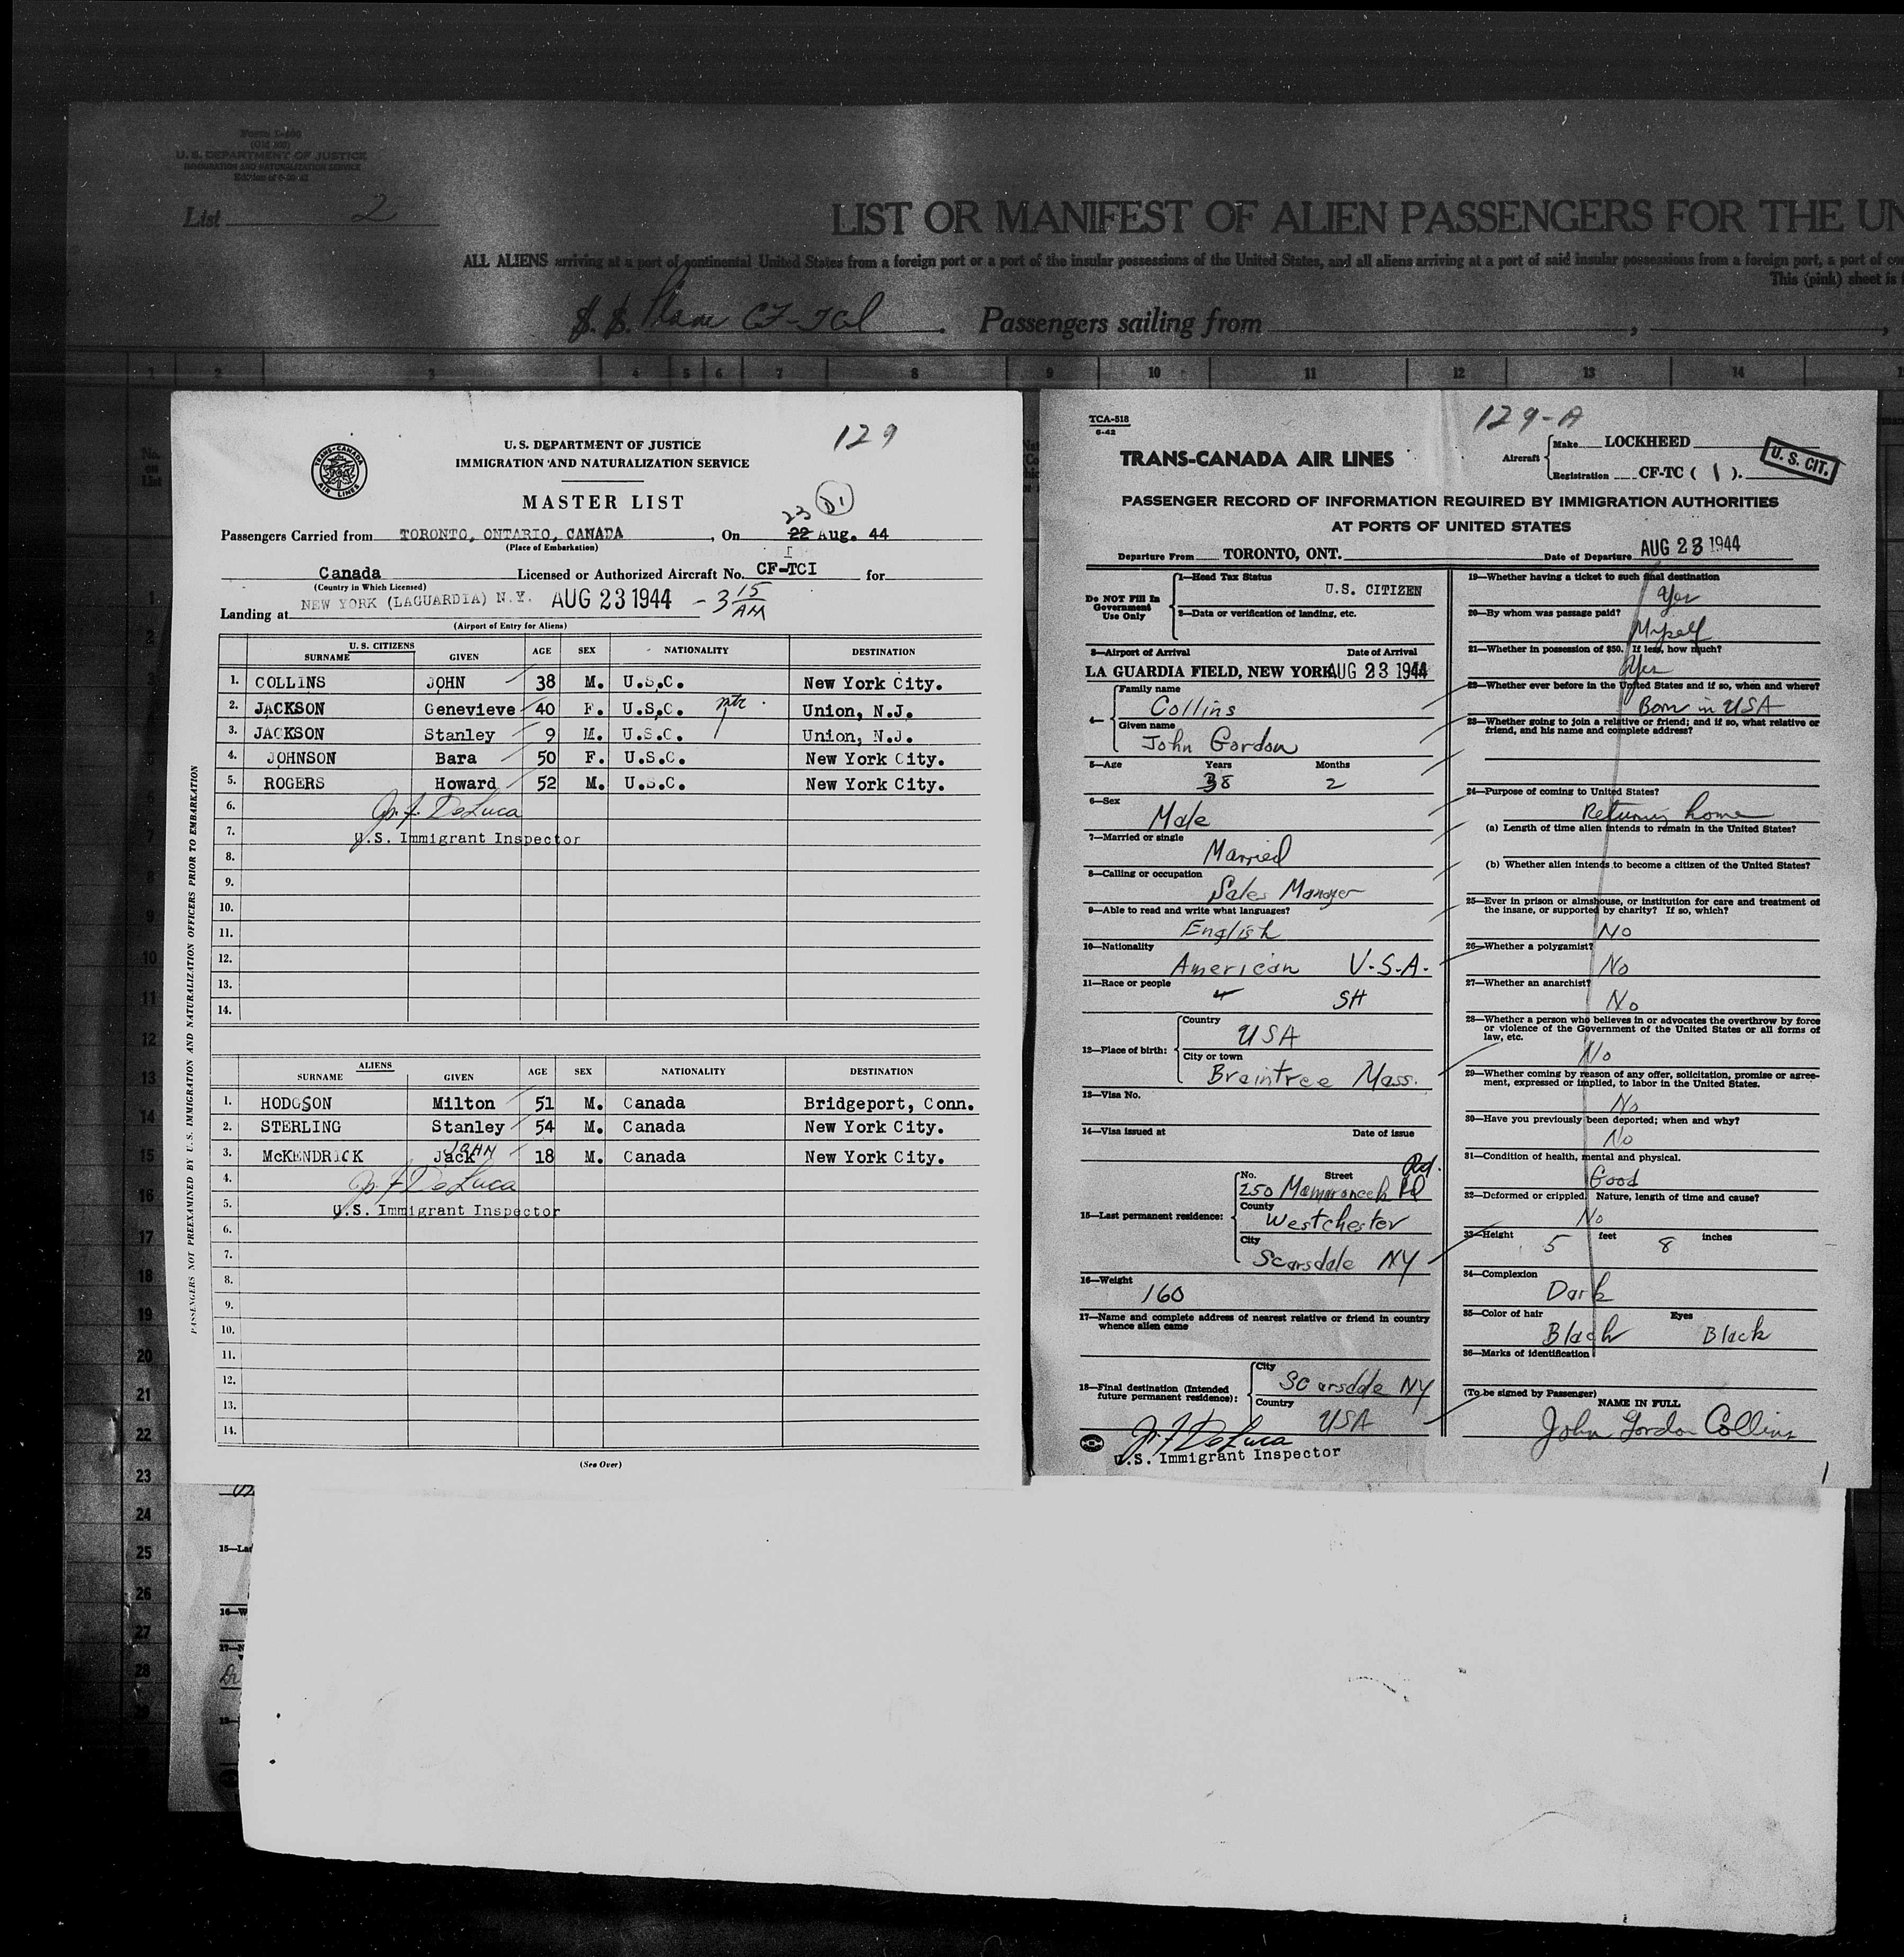 Form I-466
(Old 500)
U. S. DEPARTMENT OF JUSTICE
IMMIGRATION AND NATURALIZATION SERVICE
List 2
LIST OR MANIFEST OF ALIEN PASSENGERS FOR THE UN
ALL ALIENS arriving at a port of continental United States from a foreign port or a port of the insular possessions of the United States, and all aliens arriving at a port of said insular possessions from a foreign port, a port of co
This (pink) sheet is
S. S. Plane CF-TCI. Passengers sailing from
1 2 3 4 5 6 7 8 9 10 11 12 13 14
No. on List
129
TRANS-CANADA AIR LINES
U. S. DEPARTMENT OF JUSTICE
IMMIGRATION AND NATURALIZATION SERVICE
MASTER LIST
23 D1
Passengers Carried from TORONTO, ONTARIO, CANADA, On 22 Aug. 44
(Place of Embarkation)
I
Canada Licensed or Authorized Aircraft No. CF-TCI for
(Country in Which Licensed)
Landing at NEW YORK (LAGUARDIA) N.Y. AUG 23 1944 - 3 15 AM
(Airport of Entry for Aliens)
U. S. CITIZENS
SURNAME GIVEN AGE SEX NATIONALITY DESTINATION
1. COLLINS JOHN 38 M. U.S.C. New York City.
2. JACKSON Genevieve 40 F. U.S.C. Union, N.J.
3. JACKSON Stanley 9 M. U.S.C. Union, N.J.
4. JOHNSON Bara 50 F. U.S.C. New York City.
5. ROGERS Howard 52 M. U.S.C. New York City.
6. Jr. F. DeLuca
7. U.S. Immigrant Inspector
8.
9.
10.
11.
12.
13.
14.
ALIENS
SURNAME GIVEN AGE SEX NATIONALITY DESTINATION
1. HODGSON Milton 51 M. Canada Bridgeport, Conn.
2. STERLING Stanley 54 M. Canada New York City.
3. McKENDRICK Jack JOHN 18 M. Canada New York City.
4. Jr. F DeLuca
5. U.S. Immigrant Inspector
6.
7.
8.
9.
10.
11.
12.
13.
14.
(See Over)
PASSENGERS NOT PREEXAMINED BY U. S. IMMIGRATION AND NATURALIZATION OFFICERS PRIOR TO EMBARKATION
TCA-518
6-42
129-A
TRANS-CANADA AIR LINES
Aircraft Make LOCKHEED
Registration CF-TC ( I ).
U. S. CIT.
PASSENGER RECORD OF INFORMATION REQUIRED BY IMMIGRATION AUTHORITIES
AT PORTS OF UNITED STATES
Departure From TORONTO, ONT. Date of Departure AUG 23 1944
Do NOT Fill In Government Use Only
1—Head Tax Status U.S. CITIZEN
2—Data or verification of landing, etc.
3—Airport of Arrival Date of Arrival
LA GUARDIA FIELD, NEW YORK AUG 23 1944
4— Family name
Collins
Given name
John Gordon
5—Age Years Months
38 2
6—Sex
Male
7—Married or single
Married
8—Calling or occupation
Sales Manager
9—Able to read and write what languages?
English
10—Nationality
American U.S.A.
11—Race or people
SH
12—Place of birth: Country
USA
City or town
Braintree Mass.
13—Visa No.
14—Visa issued at Date of issue
15—Last permanent residence: No. Street
Rd.
250 Mamaroneck Rd
County
Westchester
City
Scarsdale NY
16—Weight
160
17—Name and complete address of nearest relative or friend in country
whence alien came
18—Final destination (Intended future permanent residence): City
Scarsdale NY
Country
USA
Jr. F DeLuca
U.S. Immigrant Inspector
19—Whether having a ticket to such final destination
Yes
20—By whom was passage paid?
Myself
21—Whether in possession of $50. If less, how much?
Yes
22—Whether ever before in the United States and if so, when and where?
Born in USA
23—Whether going to join a relative or friend; and if so, what relative or
friend, and his name and complete address?
24—Purpose of coming to United States?
Returning home
(a) Length of time alien intends to remain in the United States?
(b) Whether alien intends to become a citizen of the United States?
25—Ever in prison or almshouse, or institution for care and treatment of
the insane, or supported by charity? If so, which?
No
26—Whether a polygamist?
No
27—Whether an anarchist?
No
28—Whether a person who believes in or advocates the overthrow by force
or violence of the Government of the United States or all forms of
law, etc.
No
29—Whether coming by reason of any offer, solicitation, promise or agree-
ment, expressed or implied, to labor in the United States.
No
30—Have you previously been deported; when and why?
No
31—Condition of health, mental and physical.
Good
32—Deformed or crippled. Nature, length of time and cause?
No
33—Height 5 feet 8 inches
34—Complexion
Dark
35—Color of hair Eyes
Black Black
36—Marks of identification
(To be signed by Passenger)
NAME IN FULL
John Gordon Collins
1
1
2
3
5
6
7
8
9
10
11
12
13
14
15
16
17
18
19
20
21
22
23
24
25
26
27
28
29
15—Las
16—W
17—N